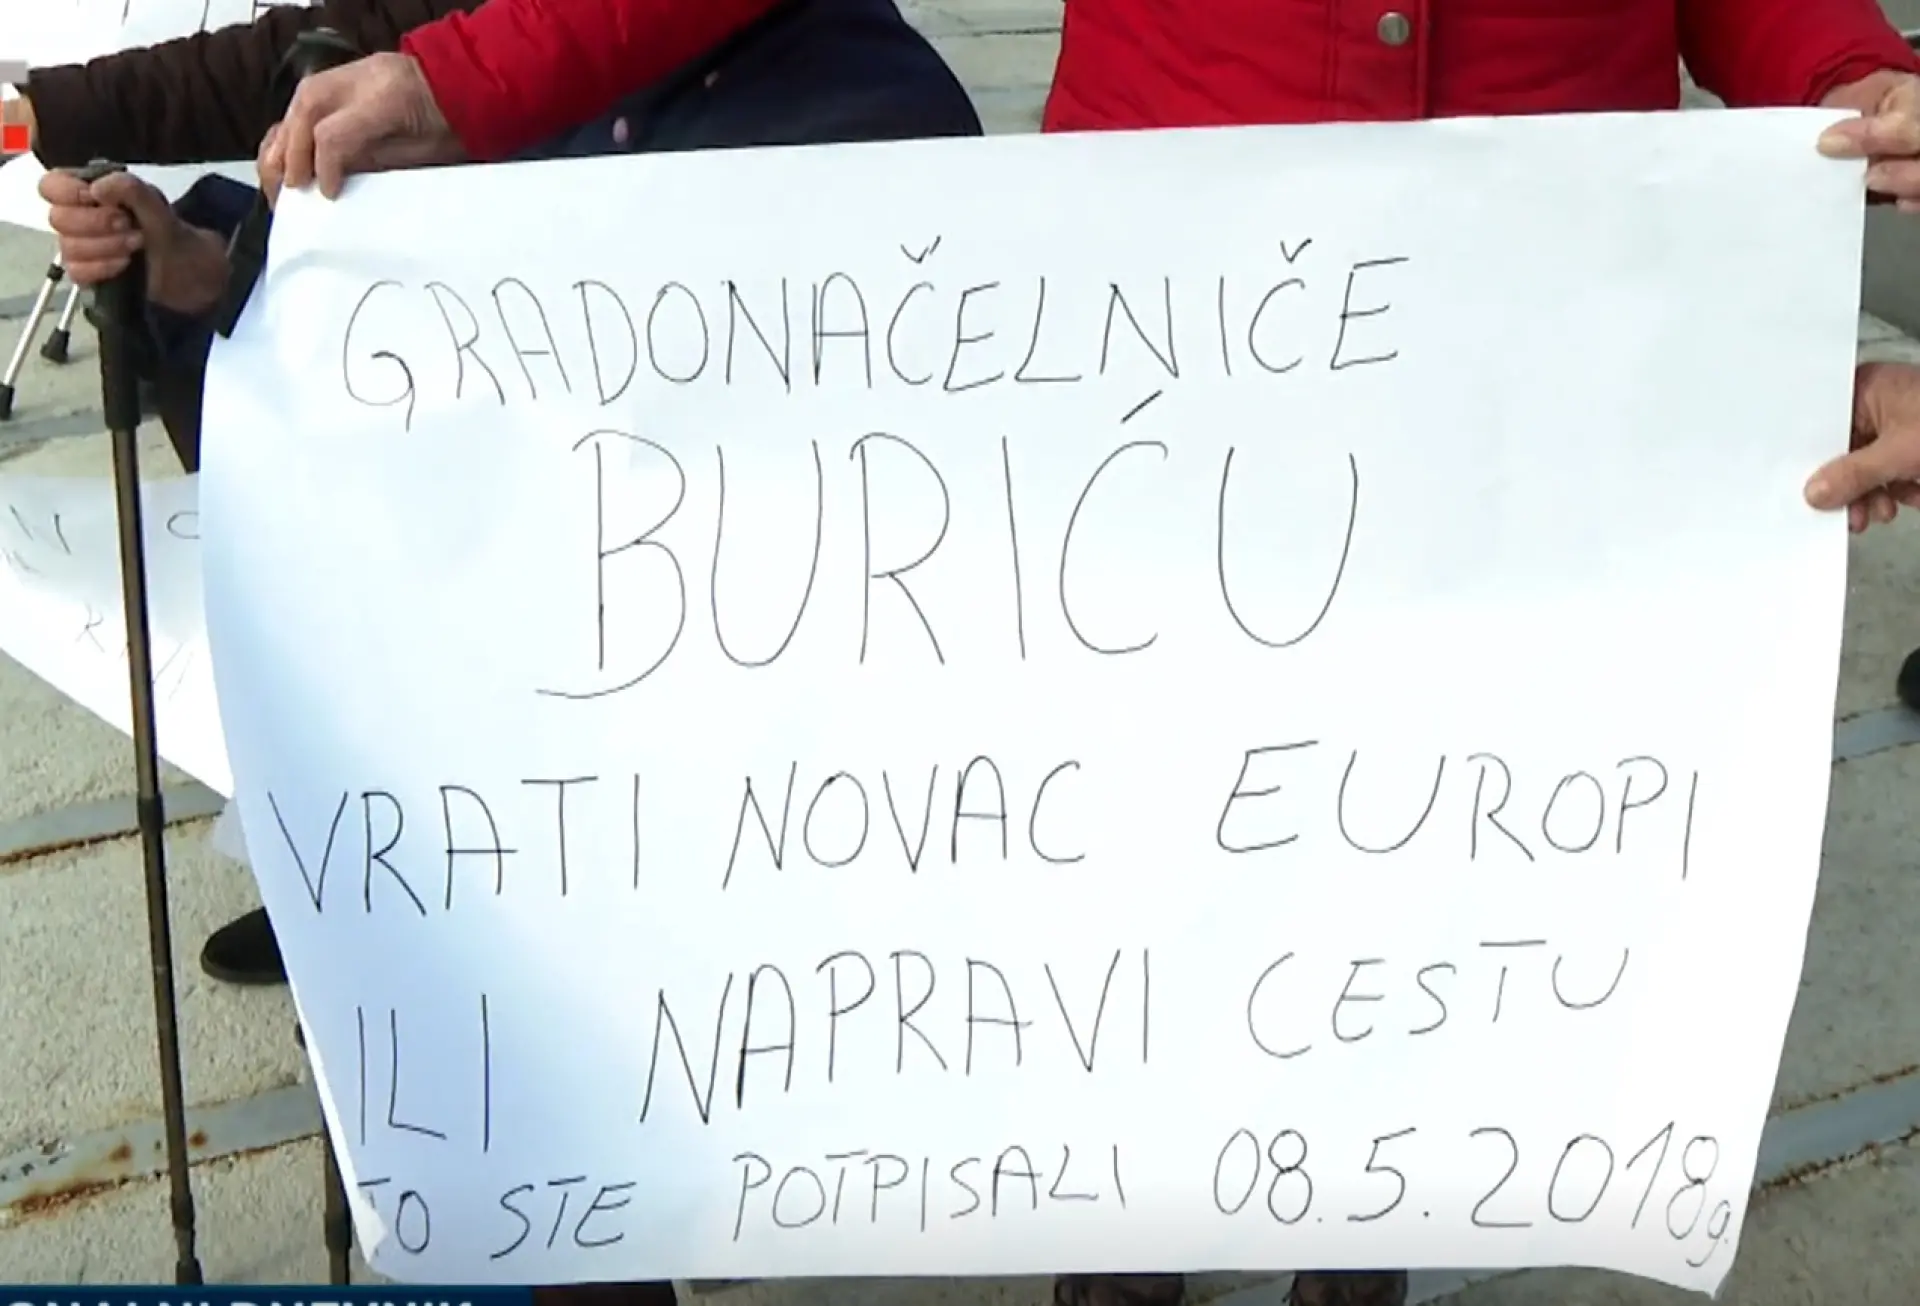 GRADONAČELNIČE
BURIĆU
VRATI NOVAC EUROPI
ILI NAPRAVI CESTU
TO STE POTPISALI 08.5.2018g.
DNEVNIK